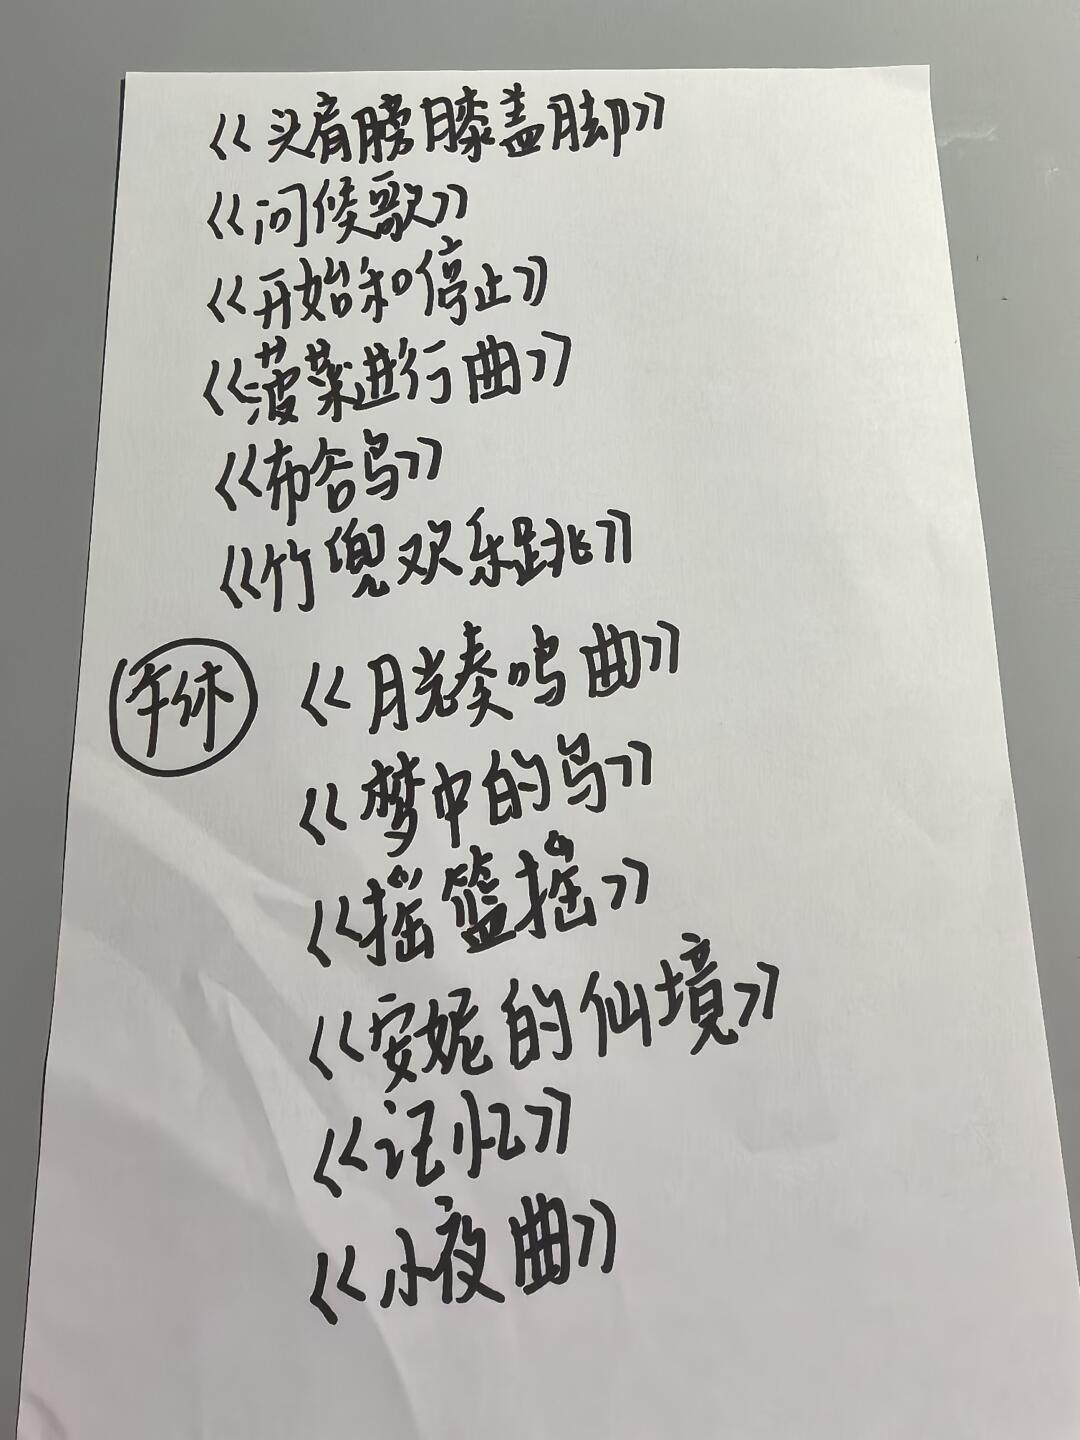 《头肩膀膝盖脚》
《问候歌》
《开始和停止》
《菠菜进行曲》
《布谷鸟》
《竹兜欢乐跳》
午休
《月光奏鸣曲》
《梦中的鸟》
《摇篮摇》
《安妮的仙境》
《记忆》
《小夜曲》